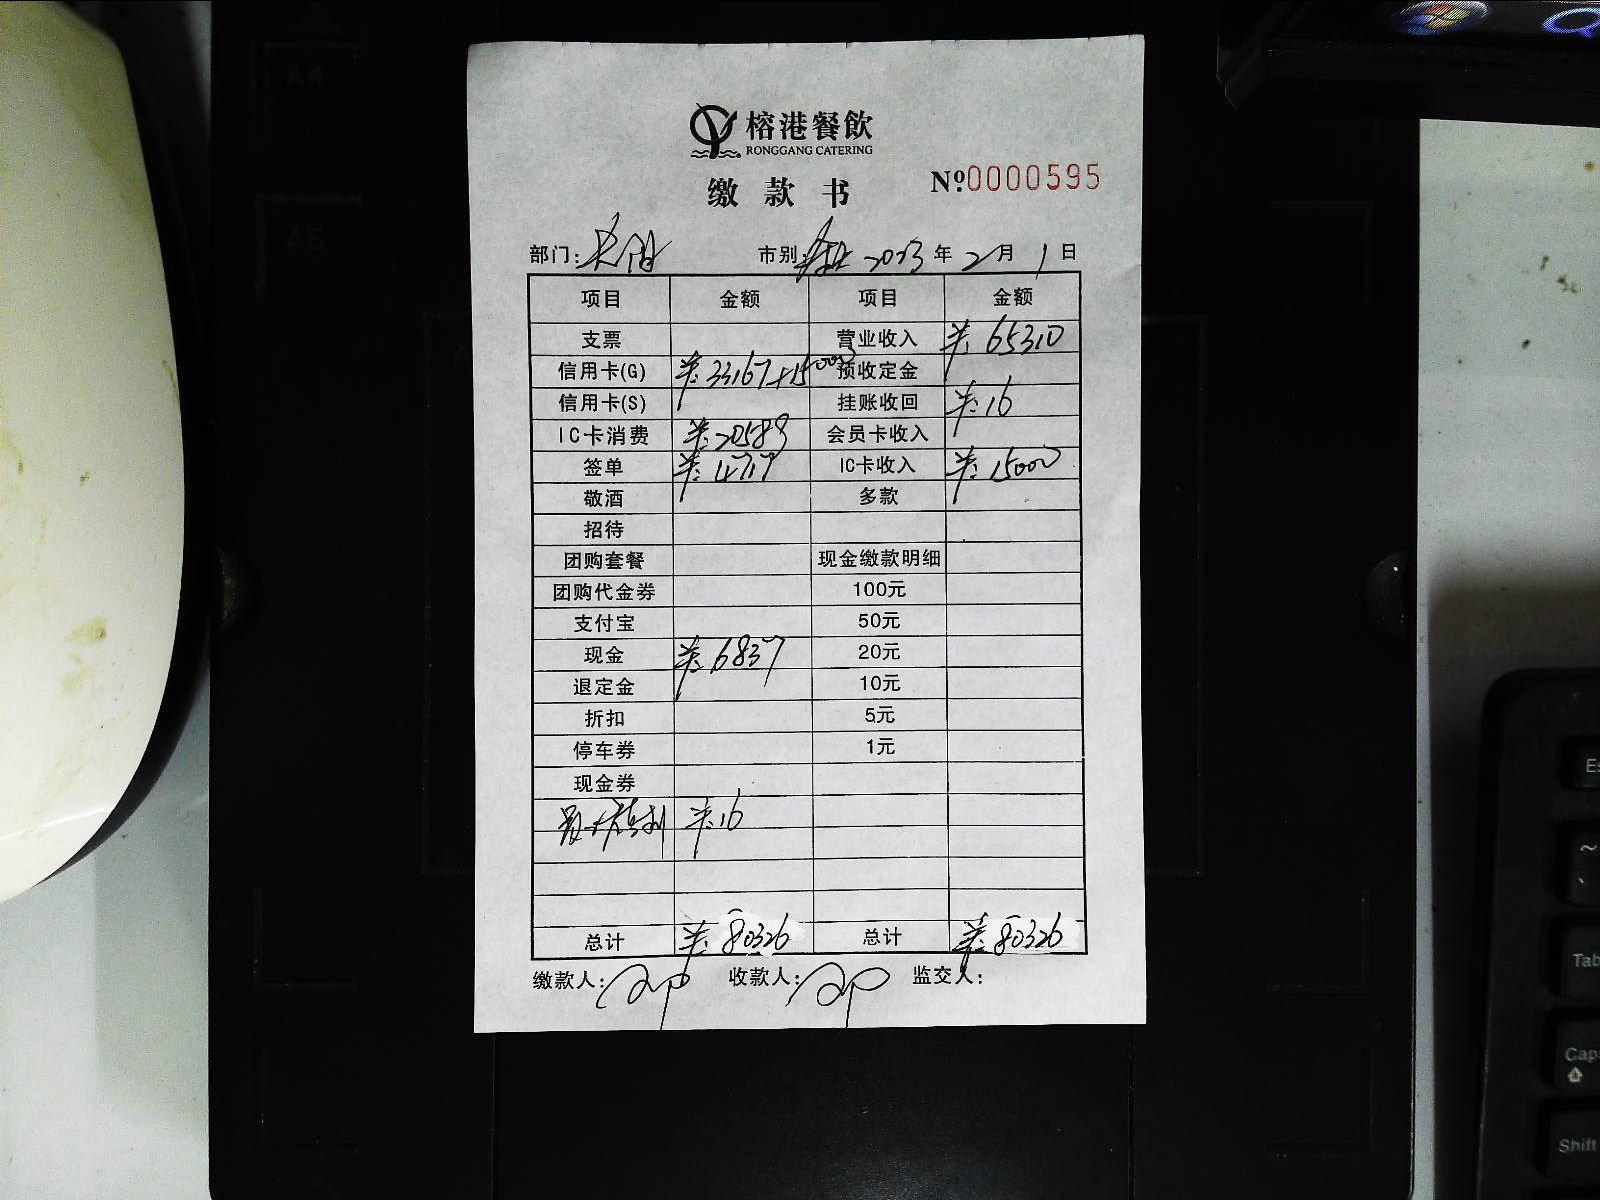 A4
A5
榕港餐飲
RONGGANG CATERING
缴款书
№0000595
部门: 市别: 2013年2月1日
项目 金额 项目 金额
支票 营业收入 ¥:65310
信用卡(G) ¥:33167+15000 预收定金
信用卡(S) 挂账收回 ¥:16
IC卡消费 ¥:20589 会员卡收入
签单 ¥:4717 IC卡收入 ¥:15000
敬酒 多款
招待
团购套餐 现金缴款明细
团购代金券 100元
支付宝 50元
现金 ¥:6837 20元
退定金 10元
折扣 5元
停车券 1元
现金券
¥:16
总计 ¥:80326 总计 ¥:80326
缴款人: 收款人: 监交人:
Es
~
Tab
Cap
Shift